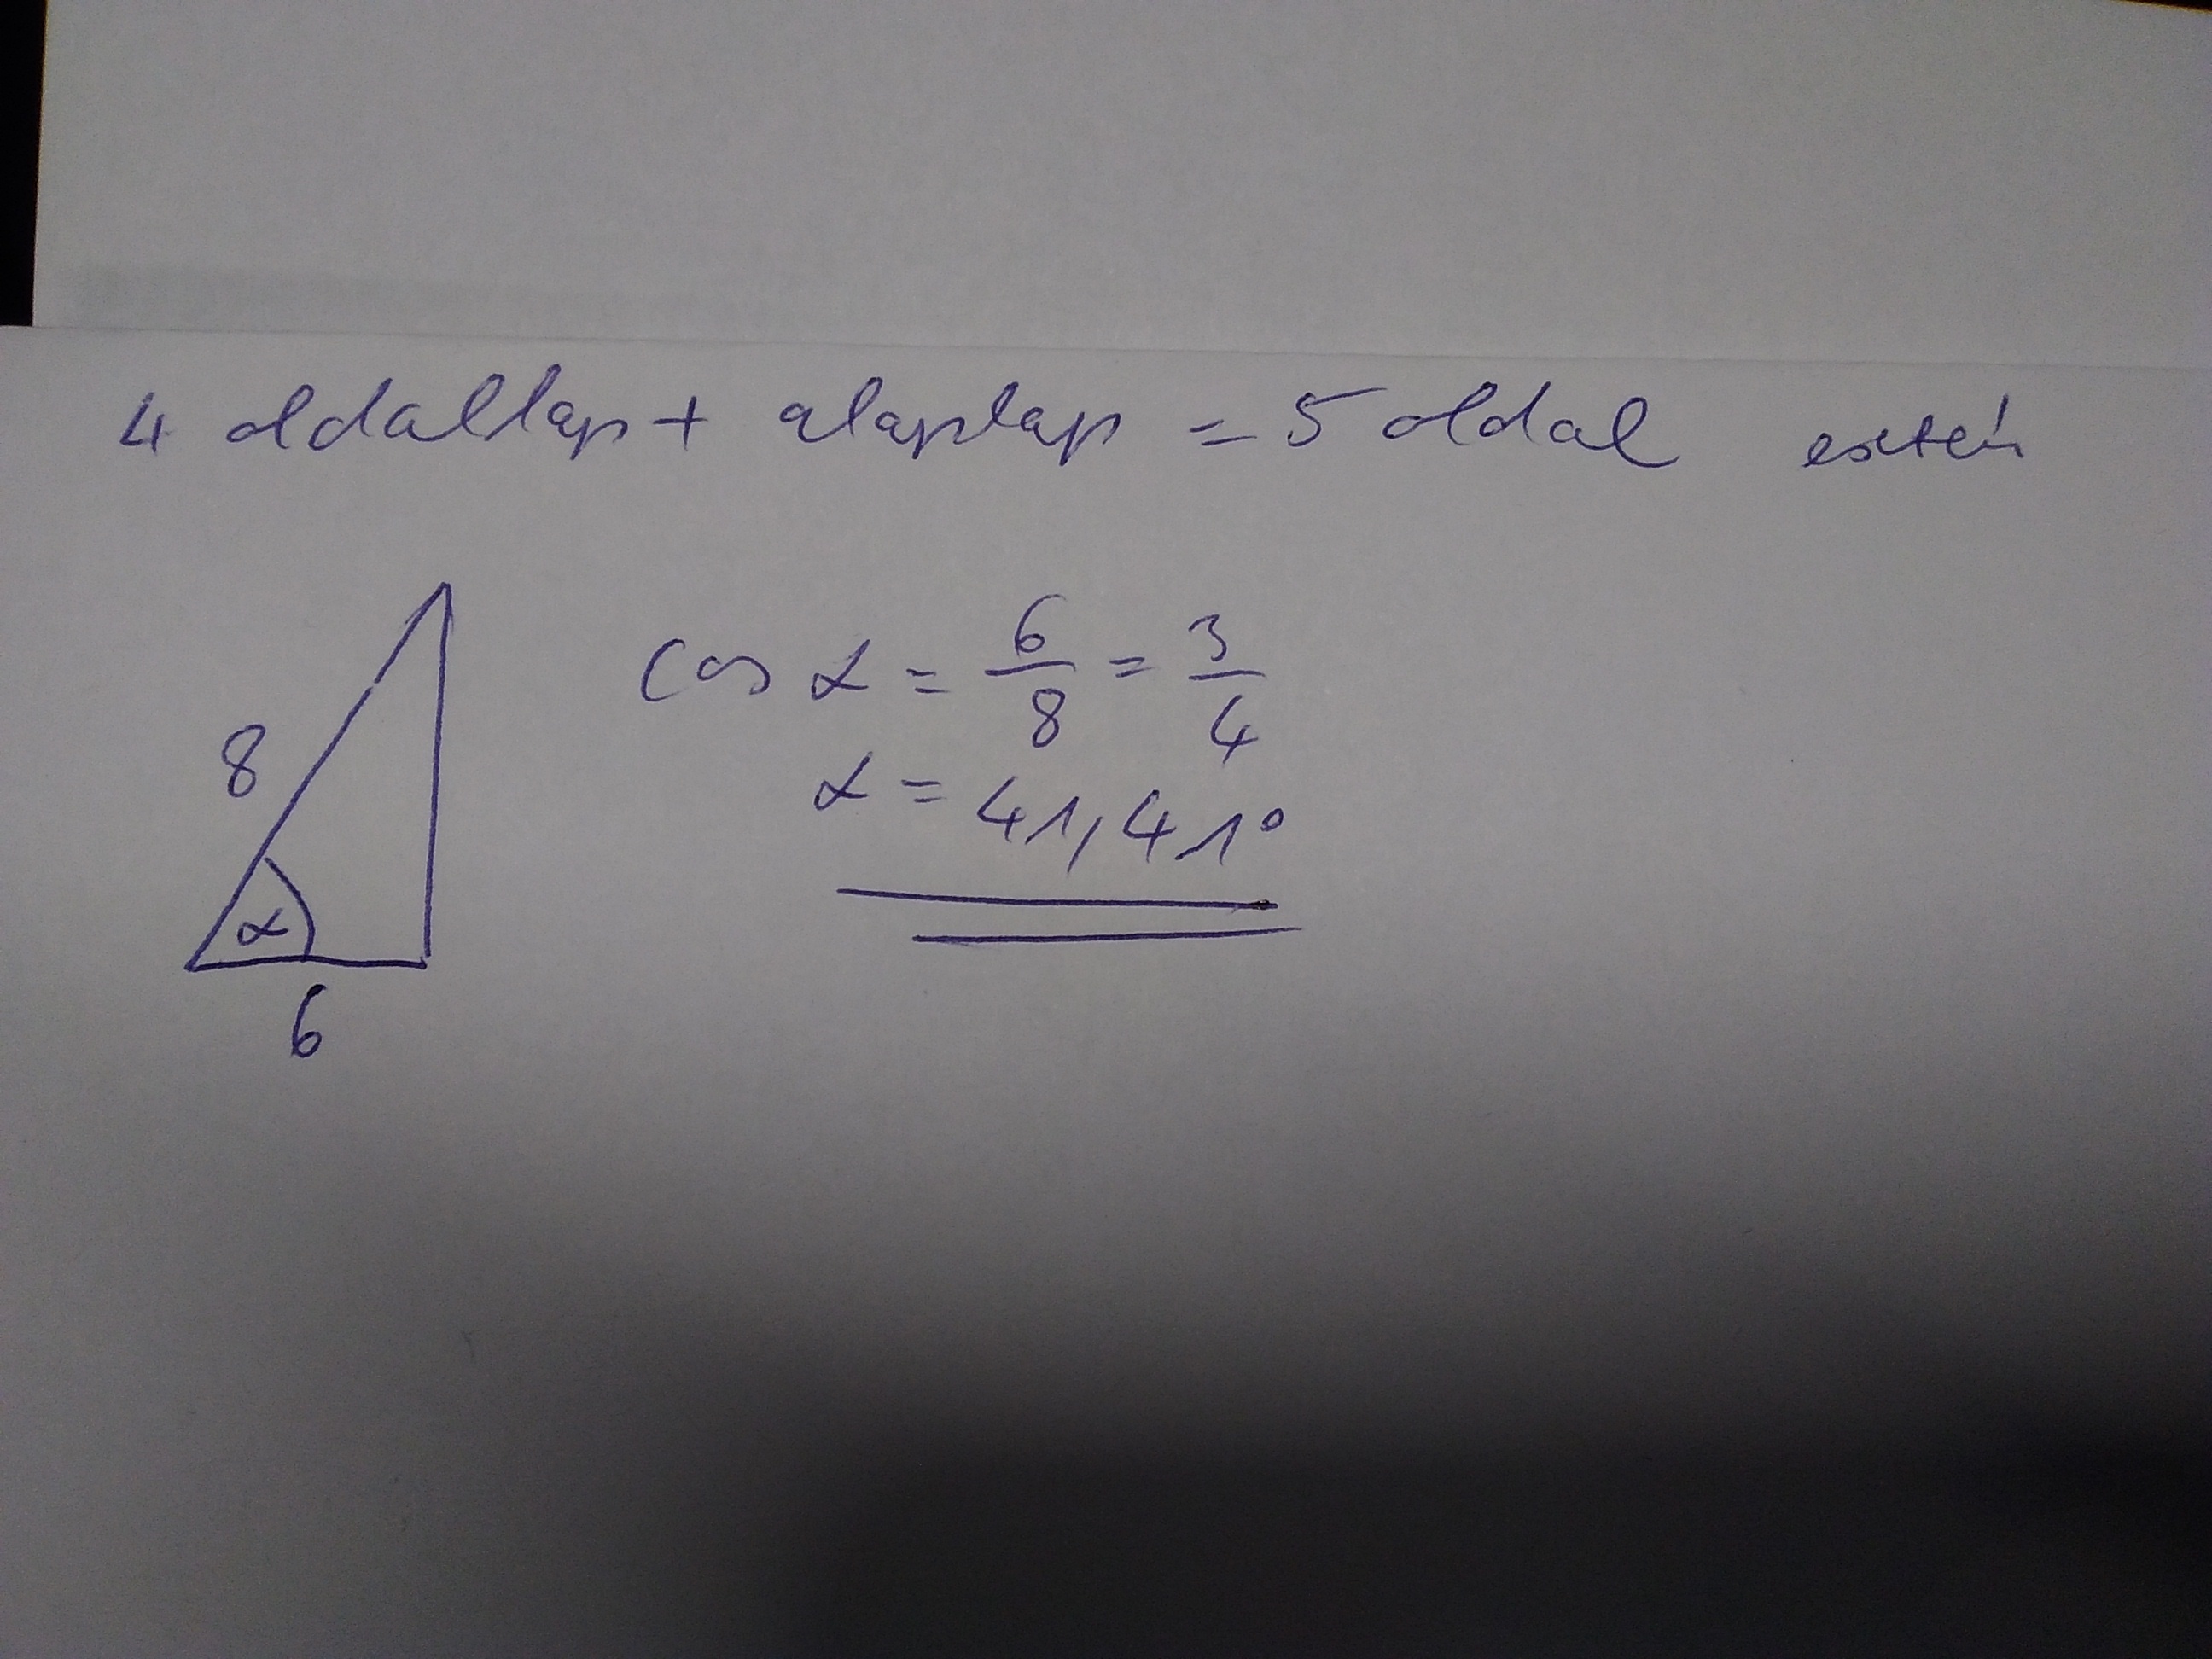 4 oldallap + alaplap = 5 oldal estén
cos α = 6/8 = 3/4
α = 41,41°
8
α
6